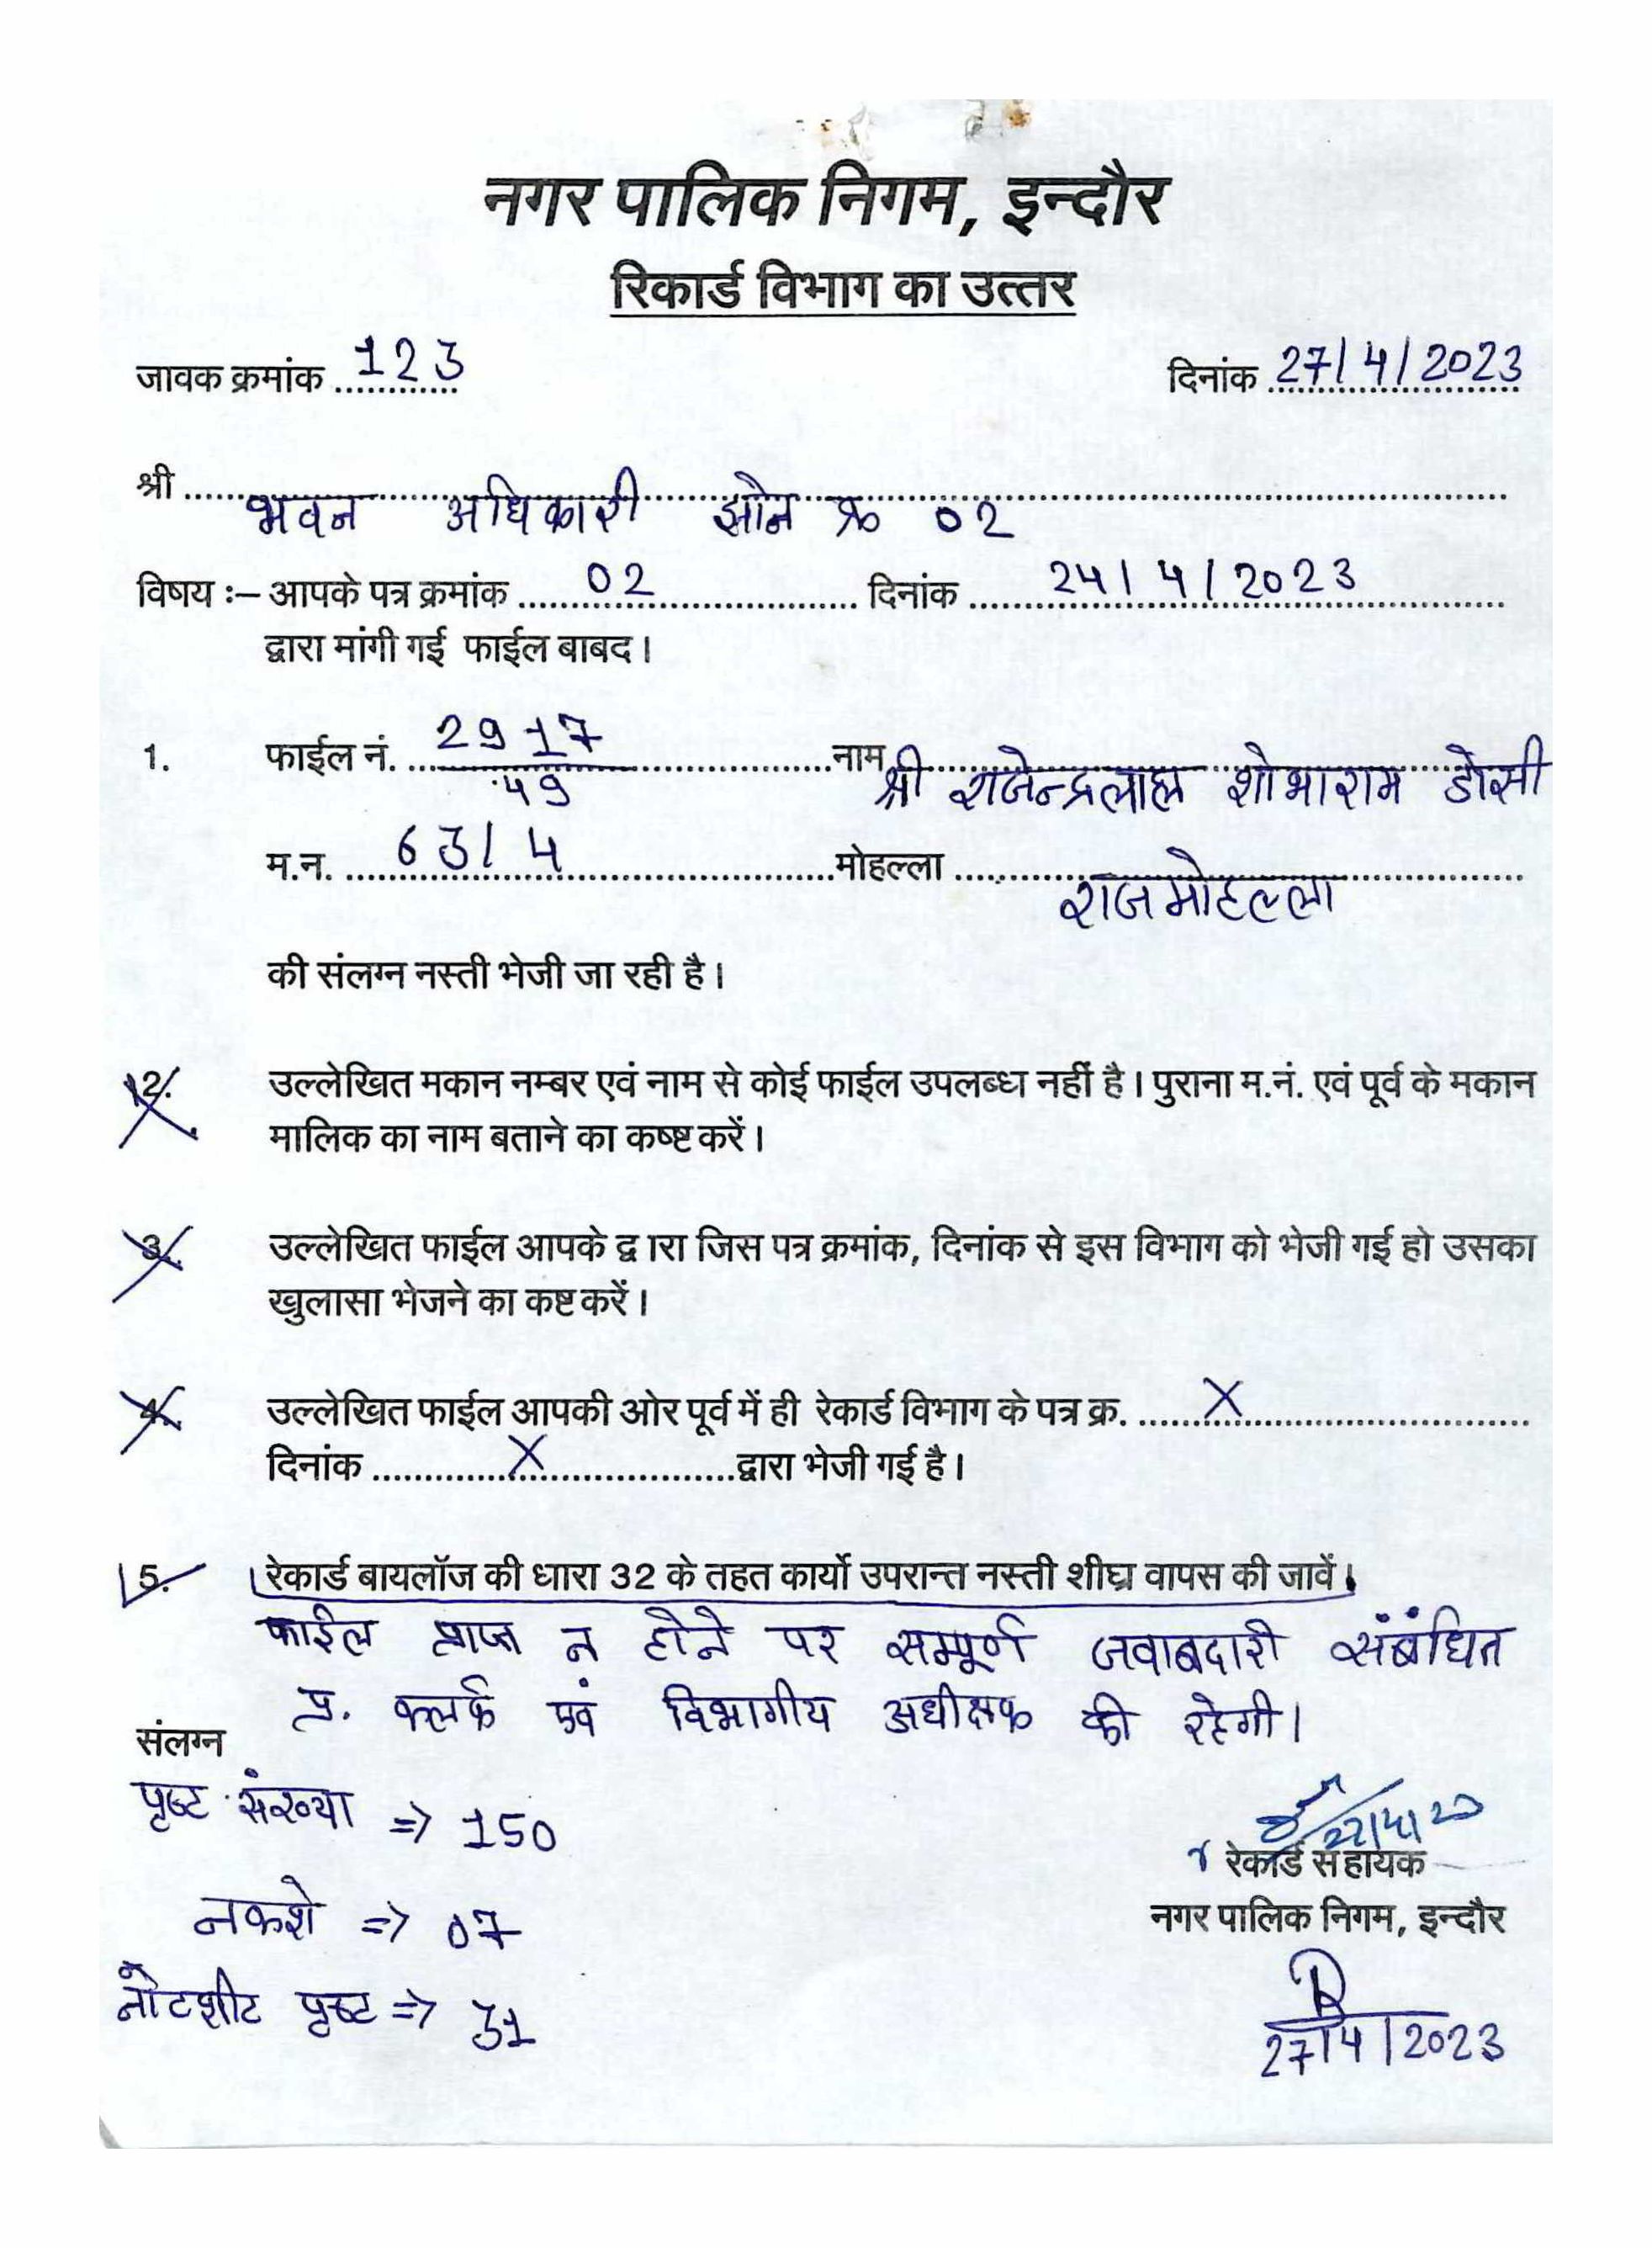 नगर पालिक निगम, इन्दौर
रिकार्ड विभाग का उत्तर
जावक क्रमांक 123 दिनांक 27/4/2023
श्री भवन अधिकारी झोन क्र 02
विषय :– आपके पत्र क्रमांक 02 दिनांक 24/4/2023
द्वारा मांगी गई फाईल बाबद।
1. फाईल नं. 2917/49 नाम श्री राजेन्द्रलाल शोभाराम डोसी
म.न. 63/4 मोहल्ला राजमोहल्ला
की संलग्न नस्ती भेजी जा रही है।
2. उल्लेखित मकान नम्बर एवं नाम से कोई फाईल उपलब्ध नहीं है। पुराना म.नं. एवं पूर्व के मकान
मालिक का नाम बताने का कष्ष्ट करें।
3. उल्लेखित फाईल आपके द्व ारा जिस पत्र क्रमांक, दिनांक से इस विभाग को भेजी गई हो उसका
खुलासा भेजने का कष्ट करें।
4. उल्लेखित फाईल आपकी ओर पूर्व में ही रेकार्ड विभाग के पत्र क्र. X
दिनांक X द्वारा भेजी गई है।
5. रेकार्ड बायलॉज की धारा 32 के तहत कार्यो उपरान्त नस्ती शीघ्र वापस की जावें।
फाईल प्राप्त न होने पर सम्पूर्ण जवाबदारी संबंधित
प्र. क्लर्क एवं विभागीय अधीक्षक की रहेगी।
संलग्न
पृष्ट संख्या => 150
नकशे => 07
नोटशीट पृष्ट => 31
रेकार्ड सहायक
नगर पालिक निगम, इन्दौर
27/4/2023